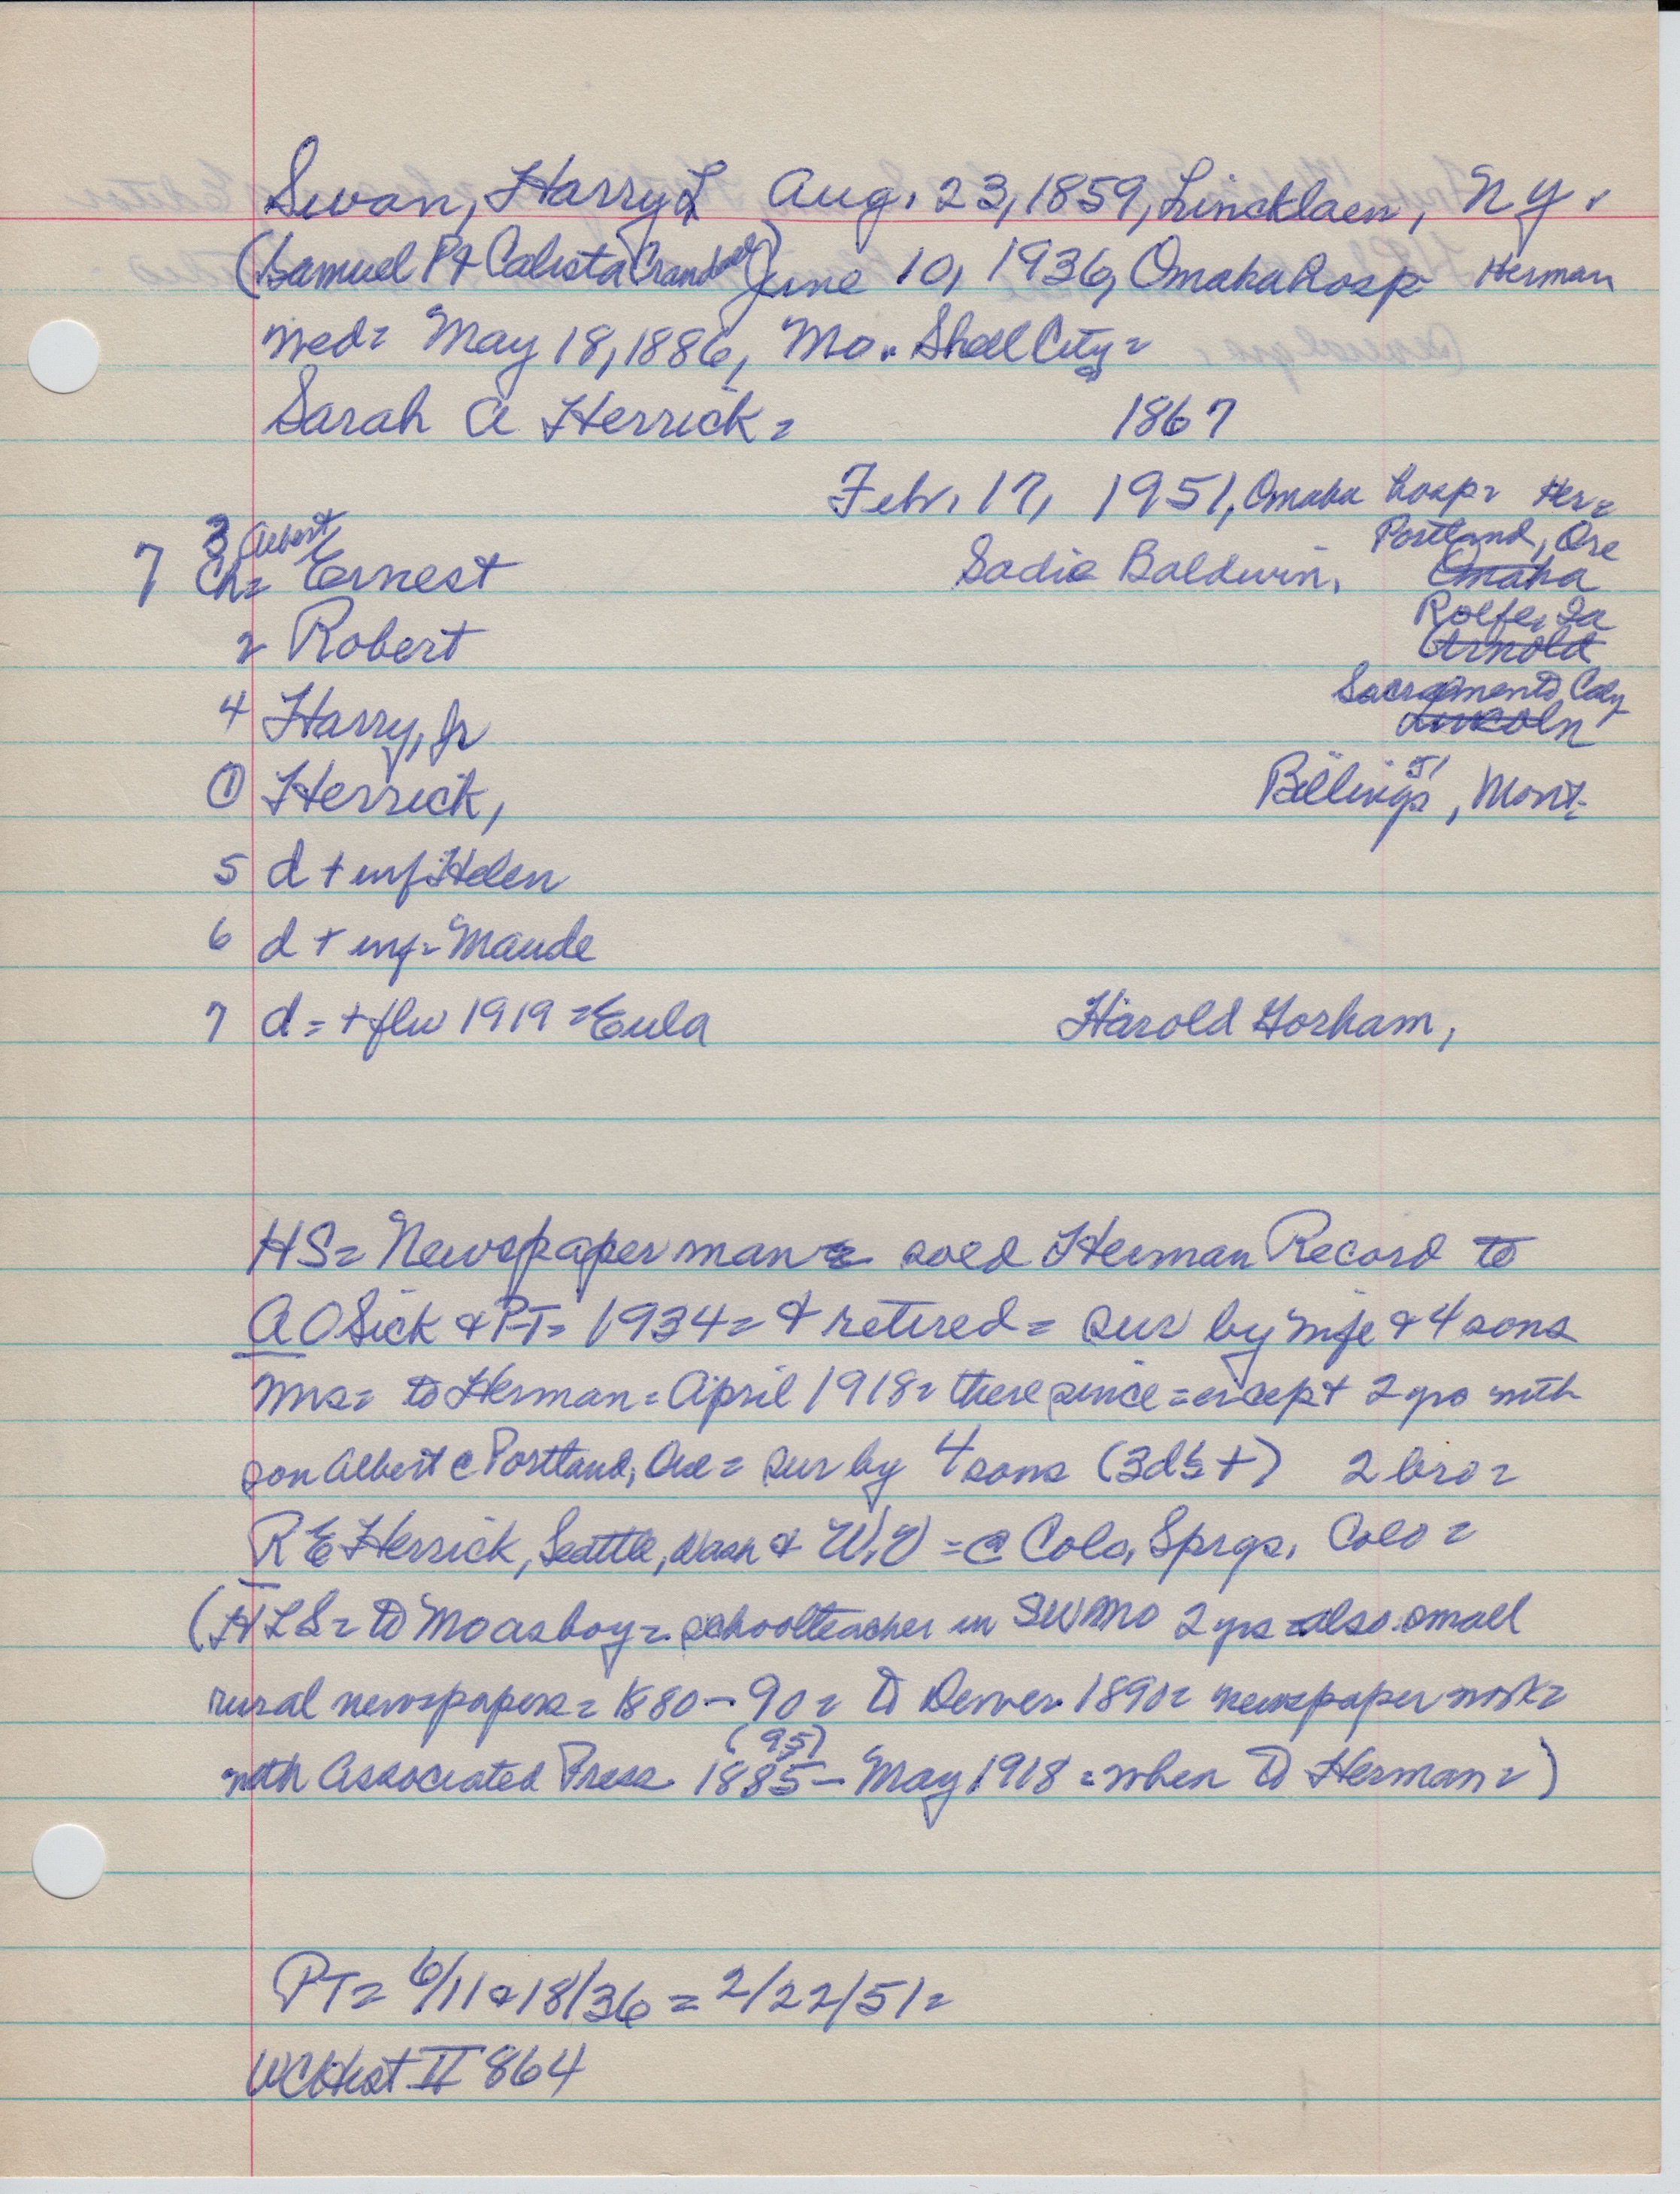 Swan, Harry L Aug. 23, 1859, Lincklaen, N y.
(Samuel P & Calista Crandall) June 10, 1936, Omaha hosp- Herman
med= May 18, 1886, Mo. Shell City=
Sarah A Herrick= 1867
Feb. 17, 1951, Omaha hosp= Her=
3 Albert Portland, Ore
7 Ch= Ernest Sadie Baldwin, Omaha
Rolfe, Ia
2 Robert Arnold
Sacramento, Caly
4 Harry, Jr Lincoln
51
① Herrick, Billings, Mont=
5 d + inf= Helen
6 d + inf= Maude
7 d= + flu 1919 = Eula Harold Gorham,
HS= Newspaper man= sold Herman Record to
A O Sick & PT= 1934= & retired= sur by wife & 4 sons
Mrs= to Herman= April 1918= there since= except 2 yrs with
son Albert @ Portland, Ore= sur by 4 sons (3d's +) 2 bro=
R E Herrick, Seattle, Wash & W.V = @ Colo. Sprgs. Colo=
(H L S= to Mo as boy= schoolteacher in SW Mo 2 yrs= also small
rural newspapers= 1880-90= to Denver 1890= newspaper work=
(95)
with Associated Press 1885- May 1918= when to Herman=)
PT= 6/11 & 18/36 = 2/22/51=
WCHist II 864